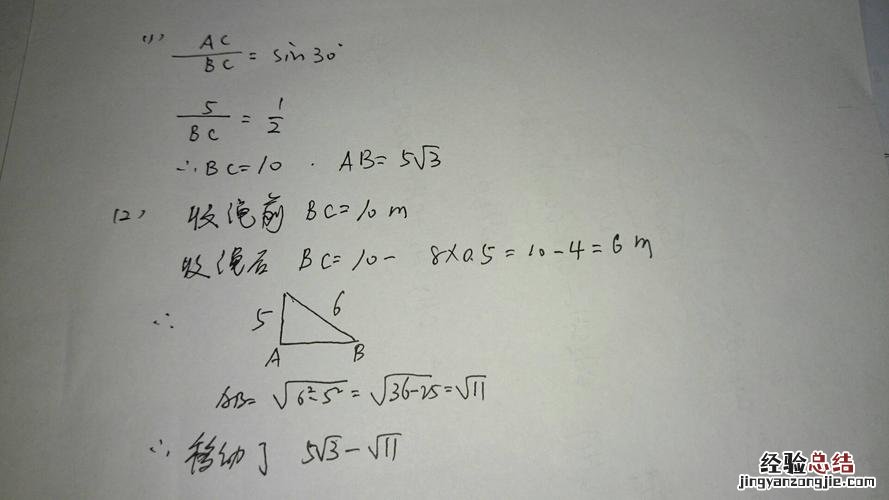 (1) AC/BC = sin30°
5/BC = 1/2
∴BC=10 . AB=5√3
(2) 收绳前 BC=10m
收绳后 BC=10-8×0.5=10-4=6m
∴ 5 6
A B
AB=√6²-5²=√36-25=√11
∴ 移动了 5√3-√11
经验总结
jingyanzongjie.com